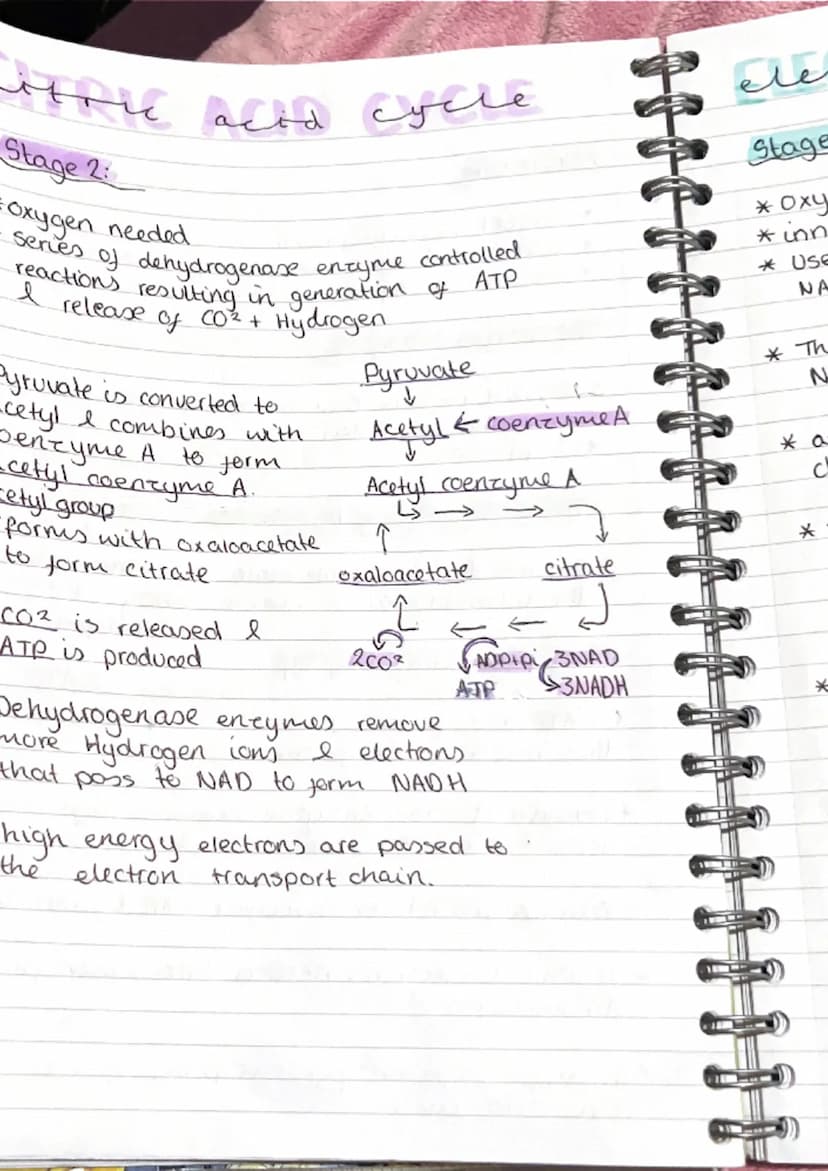 CITRIC ACID CYCLE
citric acid cycle
Stage 2:
* oxygen needed
series of dehydrogenase enzyme controlled
reactions resulting in generation of ATP
& release of CO² + Hydrogen
Pyruvate is converted to
acetyl & combines with
coenzyme A to form
acetyl coenzyme A.
acetyl group
forms with oxaloacetate
to form citrate
CO² is released &
ATP is produced
Dehydrogenase enzymes remove
more Hydrogen ions & electrons
that pass to NAD to form NADH
high energy electrons are passed to
the electron transport chain.
Pyruvate
↓
Acetyl ← coenzyme A
↓
Acetyl coenzyme A
↳ → →
↑
oxaloacetate citrate
↑ ← ←
2CO² ADP+Pi 3NAD
ATP 3NADH
ele
Stage
* Oxy
* inn
* Use
NA
* Th
N
* a
c
*
*